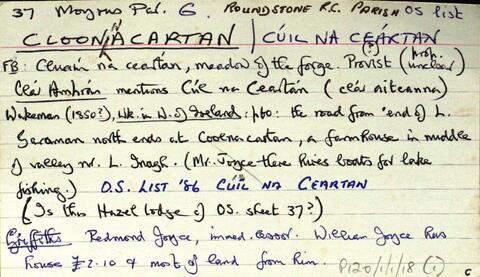 37 Moyrus Par. G. ROUNDSTONE R.C. PARISH OS list
CLOONACARTAN / CÚIL NA CEARTAN
FB: Cluain na ceartan, meadow of the forge. Provist (?) (prop. unclear)
Clár Amhrán mentions Cúl na Ceartan (clár aiteanna)
Wakeman (1850?), Wk. in W. of Ireland: p60: the road from end of L.
Garaman north ends at Coolnacartan, a farmhouse in middle
of valley nr. L. Inagh. (Mr. Joyce there hires boats for lake
fishing.) O.S. LIST '86 CÚIL NA CEARTAN
(Is this Hazel lodge of OS. sheet 37?)
Griffiths Redmond Joyce, immed. lessor. William Joyce has
house £2.10 & most of land from him. P120/1/1/18 (1)
c